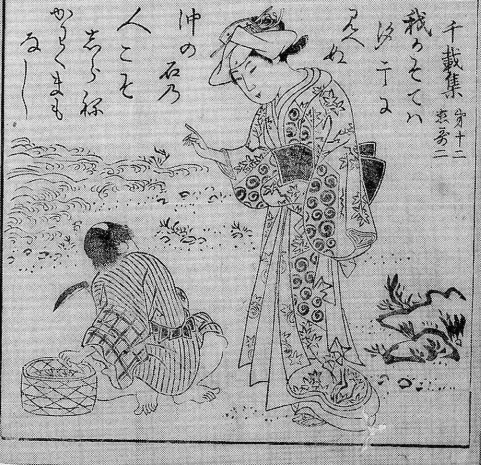 千載集
第十二
恋哥二
我かそてハ
汐干に
見へぬ
沖の石乃
人こそ
志ら祢
かわくまも
なし